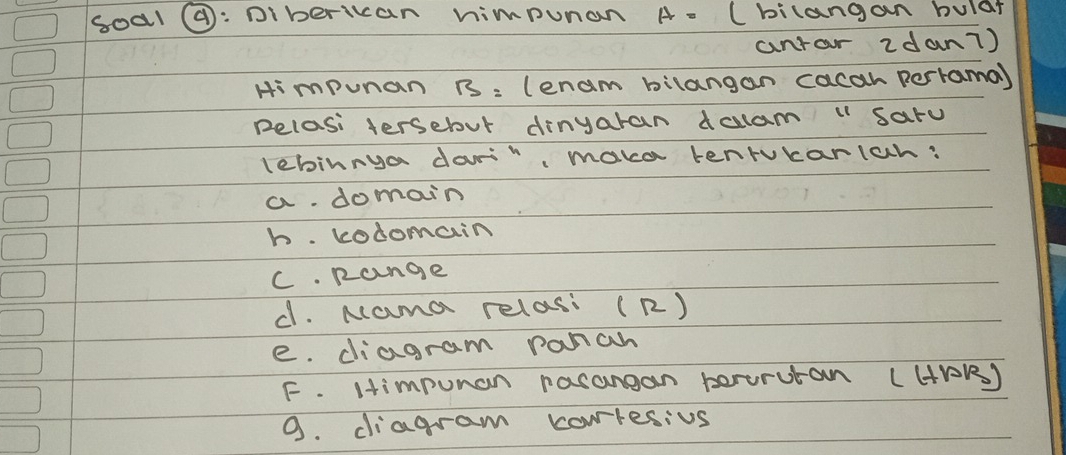 Soal ④: Diberikan himpunan A = (bilangan bulat
antar 2 dan 7)
Himpunan B = (enam bilangan cacah pertama)
Relasi tersebut dinyatan dalam " satu
lebihnya dari", maka tentukanlah:
a. domain
b. kodomain
c. Range
d. Nama relasi (R)
e. diagram panah
F. Himpunan pasangan berurutan (HPB)
g. diagram kartesius